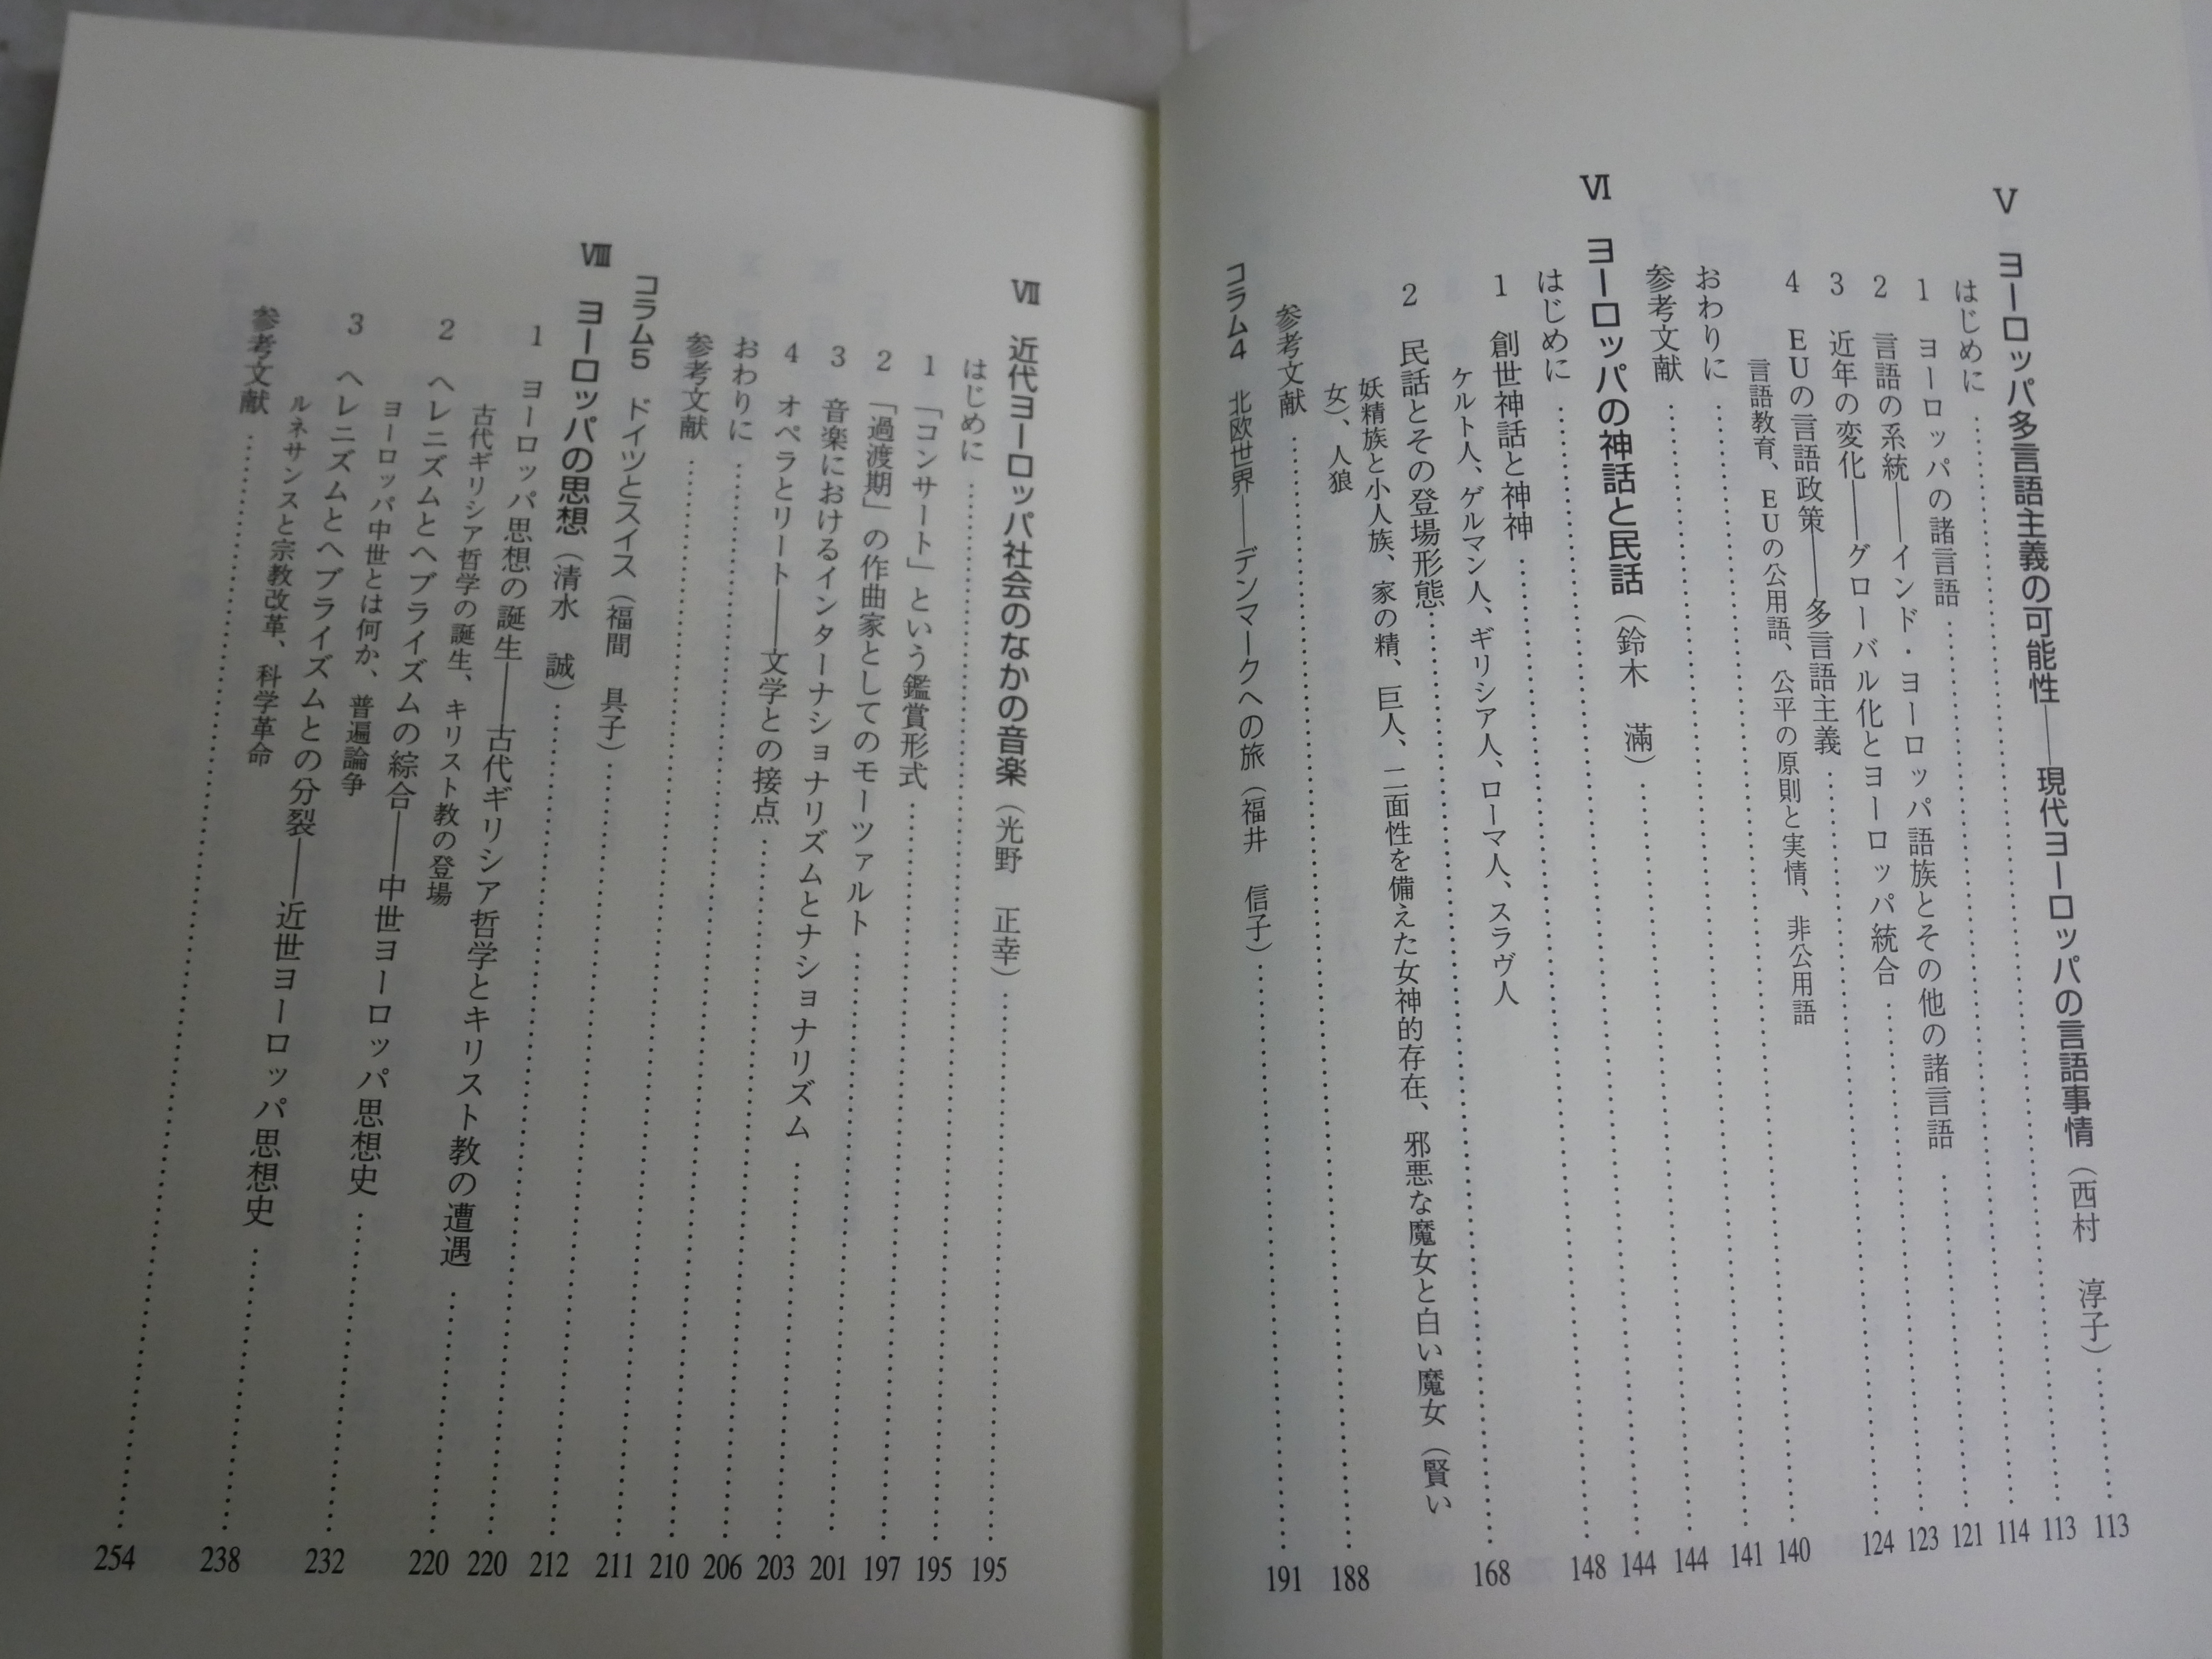 Ⅴ ヨーロッパ多言語主義の可能性――現代ヨーロッパの言語事情（西村 淳子）……113
はじめに……113
1 ヨーロッパの諸言語……114
2 言語の系統――インド・ヨーロッパ語族とその他の諸言語……121
3 近年の変化――グローバル化とヨーロッパ統合……123
4 EUの言語政策――多言語主義……124
言語教育、EUの公用語、公平の原則と実情、非公用語
おわりに……140
参考文献……141
Ⅵ ヨーロッパの神話と民話（鈴木 滿）……144
はじめに……144
1 創世神話と神神……148
ケルト人、ゲルマン人、ギリシア人、ローマ人、スラヴ人
2 民話とその登場形態……168
妖精族と小人族、家の精、巨人、二面性を備えた女神的存在、邪悪な魔女と白い魔女（賢い
女）、人狼
参考文献……188
コラム4 北欧世界――デンマークへの旅（福井 信子）……191
Ⅶ 近代ヨーロッパ社会のなかの音楽（光野 正幸）……195
はじめに……195
1 「コンサート」という鑑賞形式……197
2 「過渡期」の作曲家としてのモーツァルト……201
3 音楽におけるインターナショナリズムとナショナリズム……203
4 オペラとリート――文学との接点……206
おわりに……210
参考文献……211
コラム5 ドイツとスイス（福間 具子）……212
Ⅷ ヨーロッパの思想（清水 誠）……220
1 ヨーロッパ思想の誕生――古代ギリシア哲学とキリスト教の遭遇……220
古代ギリシア哲学の誕生、キリスト教の登場
2 ヘレニズムとヘブライズムの綜合――中世ヨーロッパ思想史……232
ヨーロッパ中世とは何か、普遍論争
3 ヘレニズムとヘブライズムとの分裂――近世ヨーロッパ思想史……238
ルネサンスと宗教改革、科学革命
参考文献……254